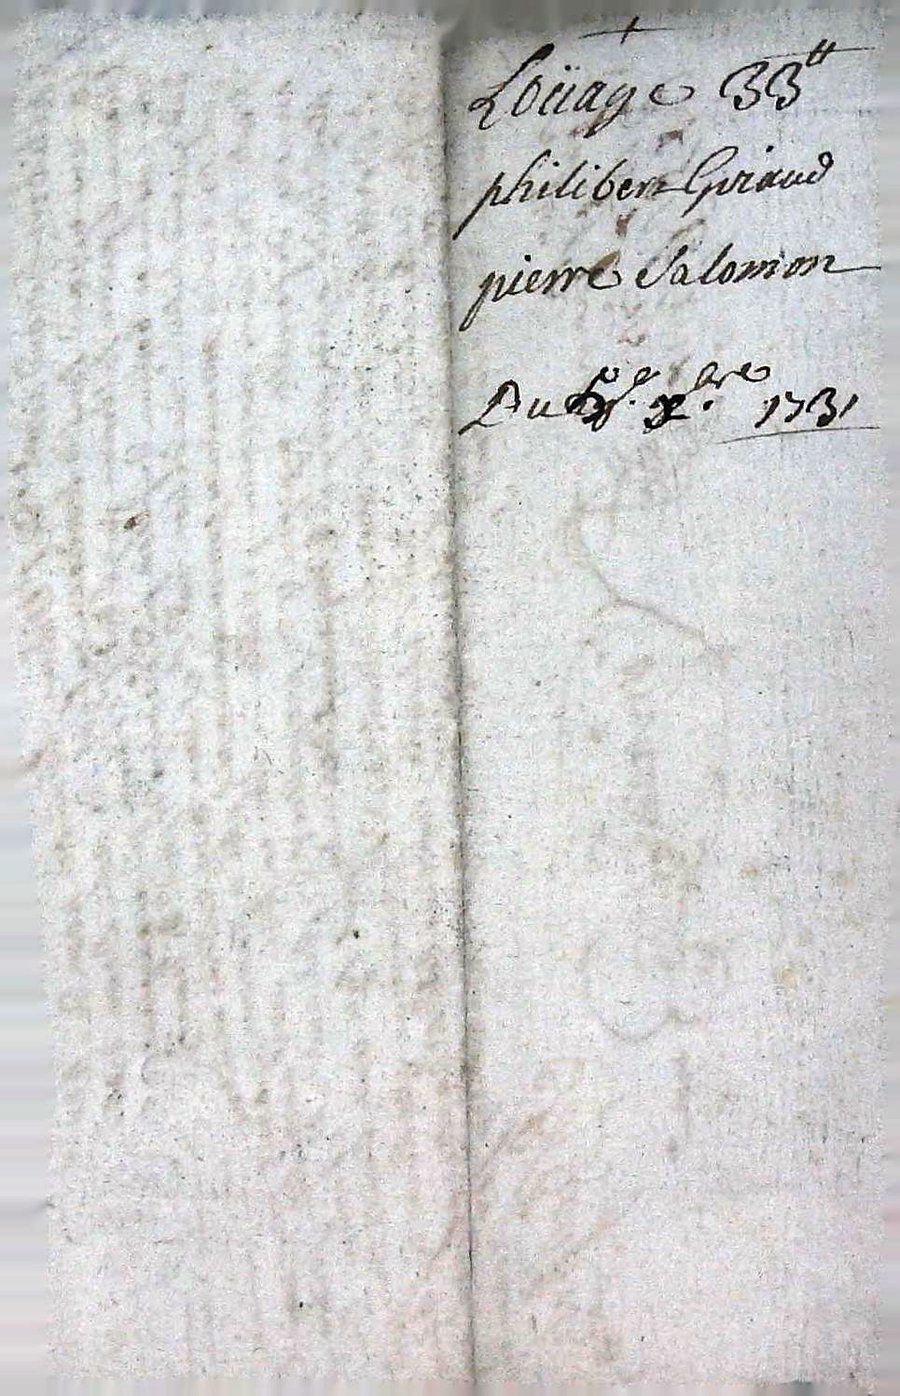 Loüage 33tt
philibert Giraud
pierre Salomon
Du xbre 1731